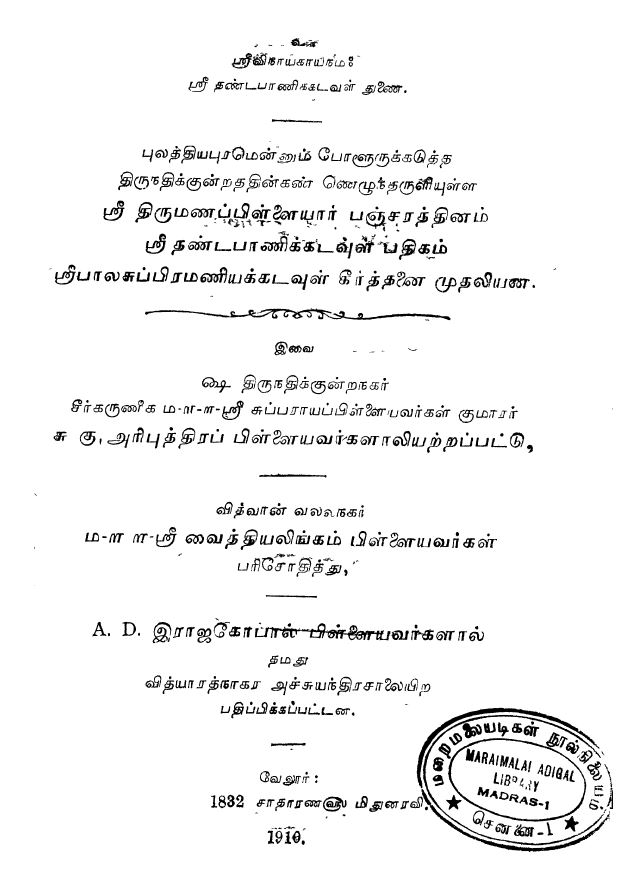 உ
ஸ்ரீவிநாயகாயநம:
ஸ்ரீ தண்டபாணிக்கடவுள் துணை.
புலத்தியபுரமென்னும் போளூருக்கடுத்த
திருநதிக்குன்றததின்கண் ணெழுந்தருளியுள்ள
ஸ்ரீ திருமணப்பிள்ளையார் பஞ்சரத்தினம்
ஸ்ரீ தண்டபாணிக்கடவுள் பதிகம்
ஸ்ரீபாலசுப்பிரமணியக்கடவுள் கீர்த்தனை முதலியன.
இவை
௸ திருநதிக்குன்றநகர்
சீர்கருணீக ம-ள-ள-ஸ்ரீ சுப்பராயப்பிள்ளையவர்கள் குமாரர்
சு கு, அரிபுத்திரப் பிள்ளையவர்களாலியற்றப்பட்டு,
வித்வான் வலலநகர்
ம-ள ள-ஸ்ரீ வைத்தியலிங்கம் பிள்ளையவர்கள்
பரிசோதித்து,
A. D. இராஜகோபால் பிள்ளையவர்களால்
தமது
வித்யாரத்நாகர அச்சுயந்திரசாலையிற
பதிப்பிக்கப்பட்டன.
வேலூர்:
1832 சாதாரண௵ மிதுனரவி.
1910.
மறைமலையடிகள் நூல்நிலையம்
MARAIMALAI ADIGAL
LIBRARY
MADRAS-1
சென்னை-1